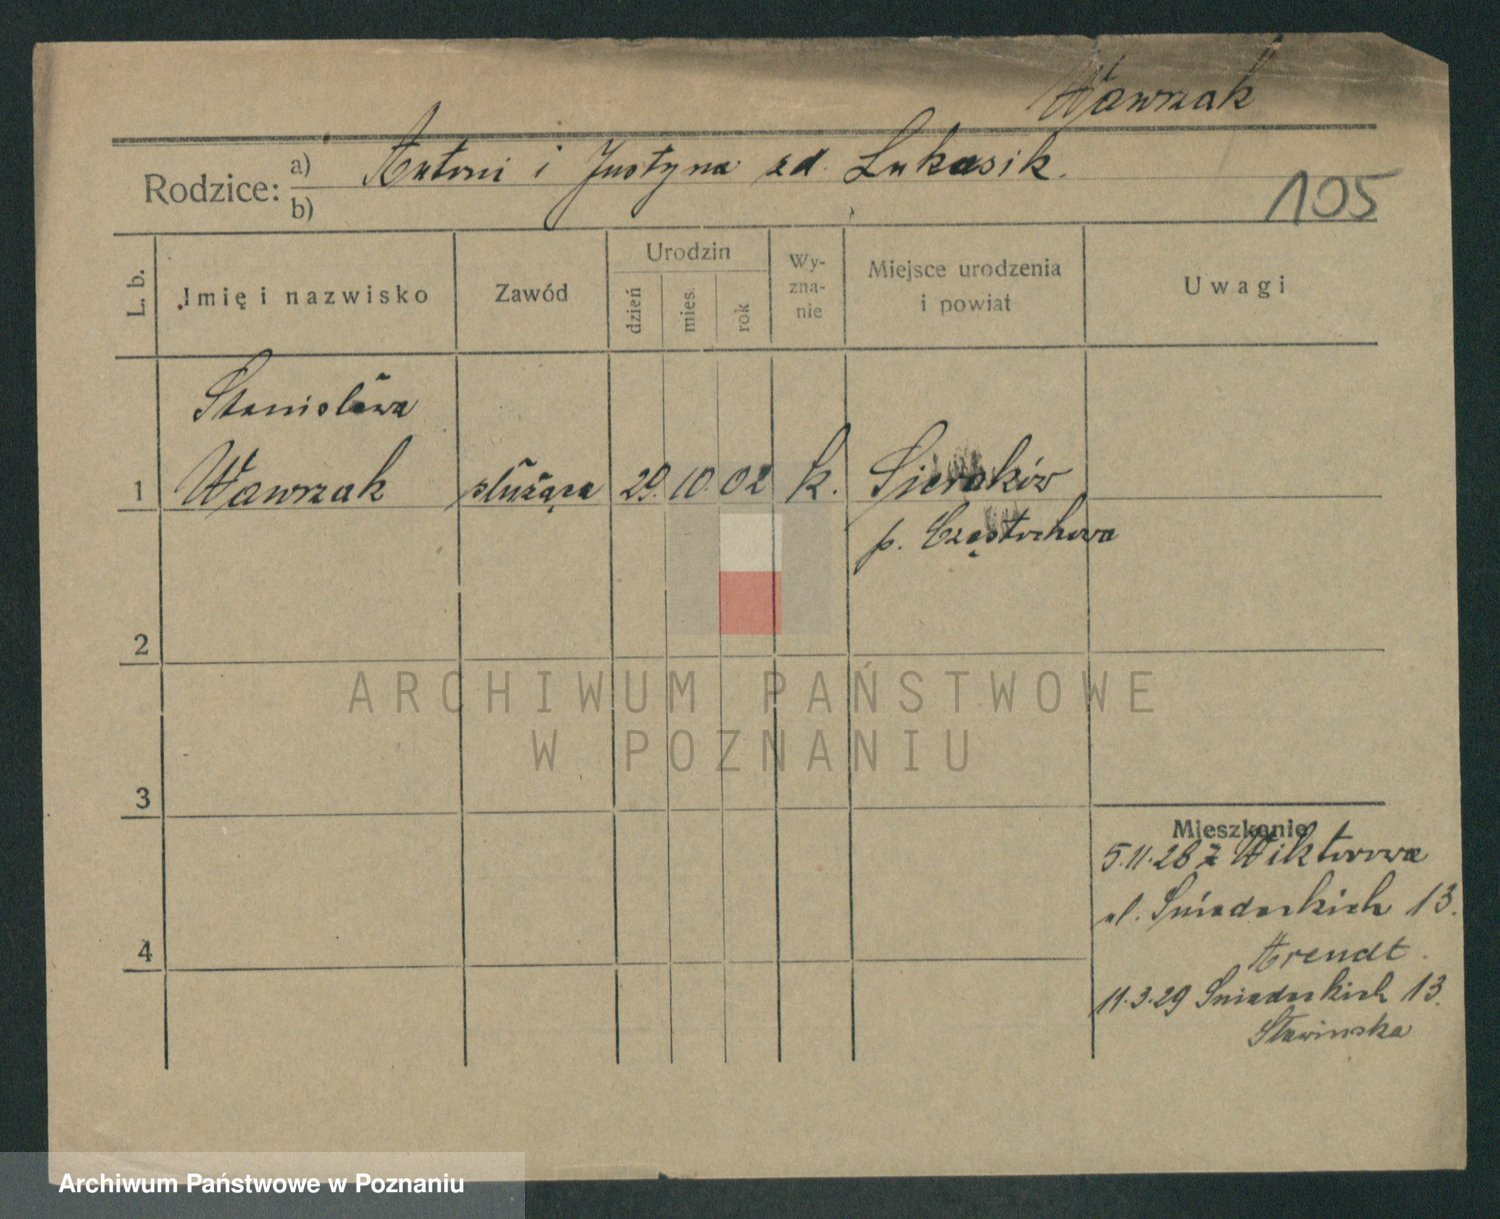 Wawrzak
Rodzice: a) Antoni i Justyna zd. Łukasik.
b)
105
L. b.
Imię i nazwisko
Zawód
Urodzin
dzień
mies.
rok
Wy-
zna-
nie
Miejsce urodzenia
i powiat
Uwagi
Stanisława
1 Wawrzak służąca 29. 10. 02 k. Sieraków
p. Częstochowa
2
3
4
Mieszkanie
5.11.28 z Wiktorowa
ul. Śniadeckich 13.
Arendt.
11.3.29 Śniadeckich 13.
Sławinska
ARCHIWUM PAŃSTWOWE
W POZNANIU
Archiwum Państwowe w Poznaniu